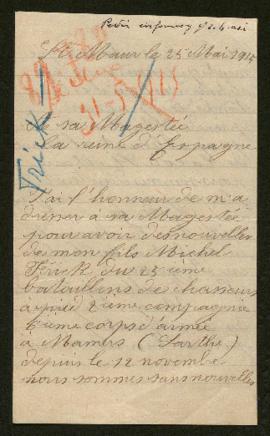 St Maur le 25 Mai 1915
31-5-1915
Frick
de sa Magestée
La reine d'Espagne
J'ai l'honneur de m'a
dresser à sa Magestée
pour avoir des nouvelles
de mon fils Michel
Frick du 25 ième
bataillons de chasseurs
à pied 2 ième compagnie
6 ième corps d'armée
à Mamers (Sarthe)
depuis le 12 novembre
nous sommes sans nouvelles